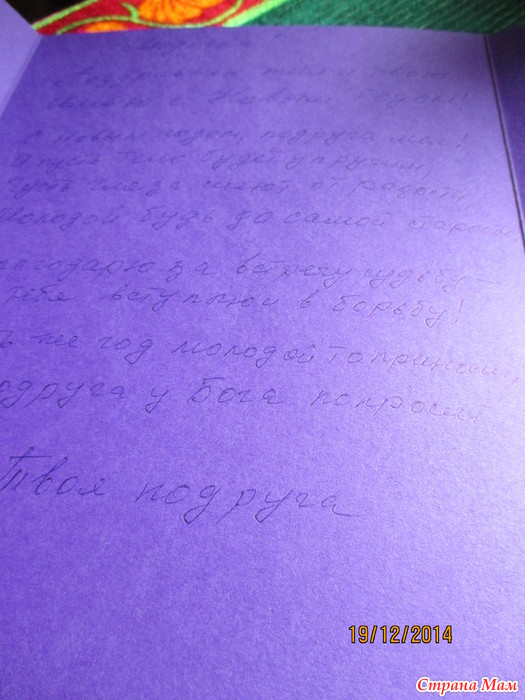 Поздравляю тебя и твою
семью с Новым Годом!
с Новым годом, подруга моя!
пусть тело будет упругим,
пусть глаза сияют от радости,
Молодой будь до самой старости
благодарю за встречу судьбу
тебя вступлю в борьбу!
же год молодой то приносит,
подруга у Бога попросит
Твоя подруга
19/12/2014
Страна Мам